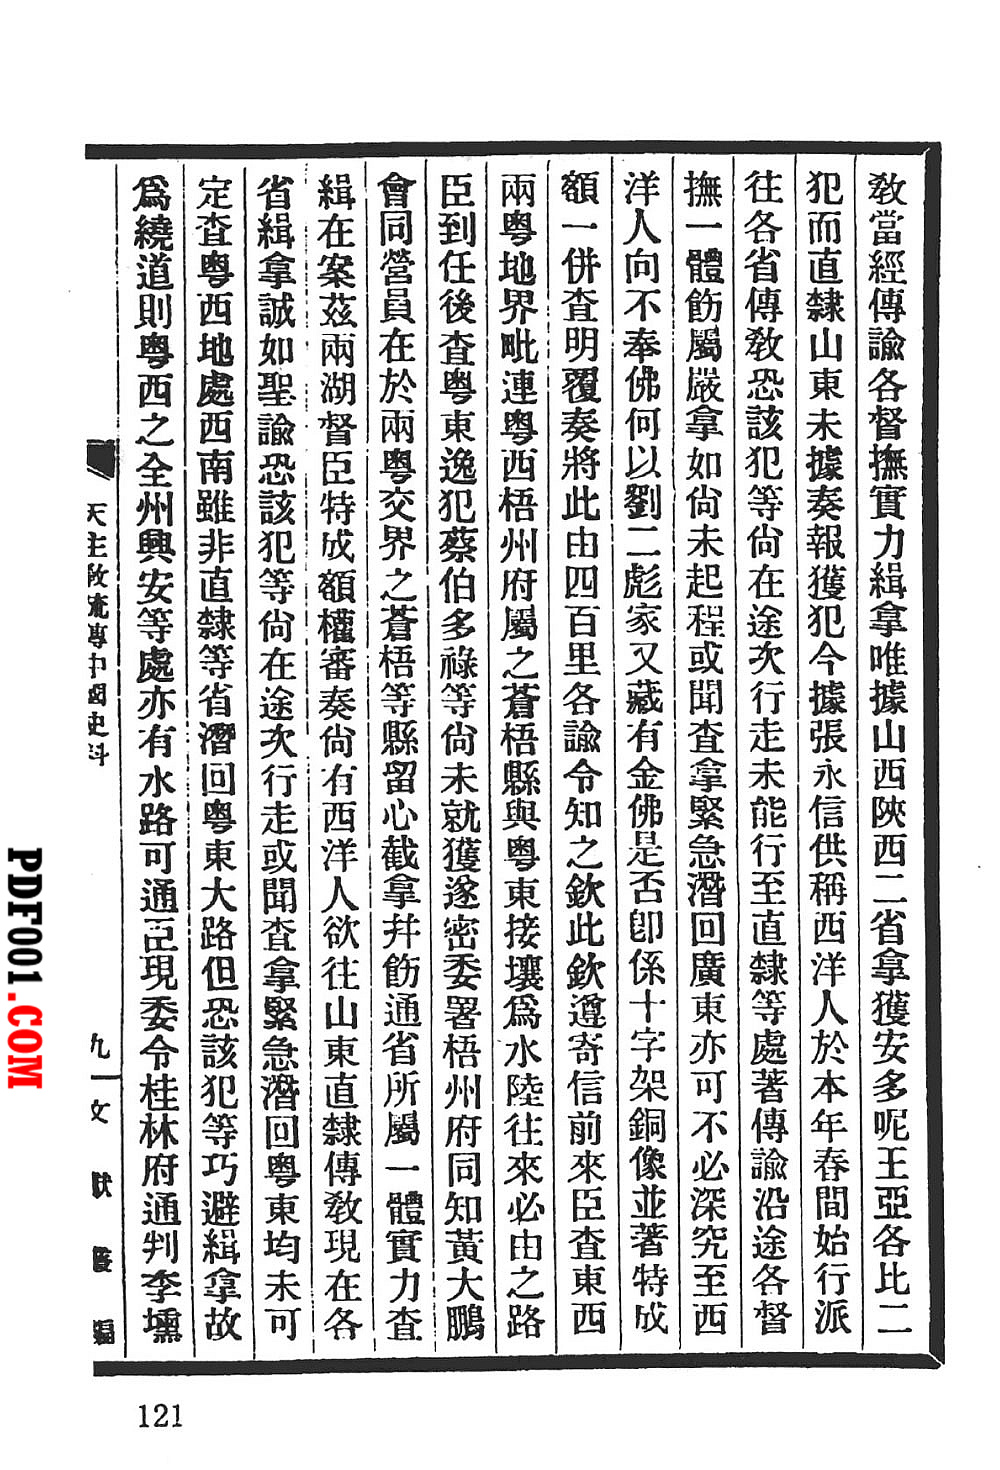 敎當經傳諭各督撫實力緝拿唯據山西陝西二省拿獲安多呢王亞各比二
犯而直隸山東未據奏報獲犯今據張永信供稱西洋人於本年春間始行派
往各省傳敎恐該犯等尙在途次行走未能行至直隸等處著傳諭沿途各督
撫一體飭屬嚴拿如尙未起程或聞查拿緊急潛回廣東亦可不必深究至西
洋人向不奉佛何以劉二彪家又藏有金佛是否卽係十字架銅像並著特成
額一併查明覆奏將此由四百里各諭令知之欽此欽遵寄信前來臣查東西
兩粵地界毗連粵西梧州府屬之蒼梧縣與粵東接壤爲水陸往來必由之路
臣到任後查粵東逸犯蔡伯多祿等尙未就獲遂密委署梧州府同知黃大鵬
會同營員在於兩粵交界之蒼梧等縣留心截拿幷飭通省所屬一體實力查
緝在案茲兩湖督臣特成額權審奏尙有西洋人欲往山東直隸傳敎現在各
省緝拿誠如聖諭恐該犯等尙在途次行走或聞查拿緊急潛回粵東均未可
定查粵西地處西南雖非直隸等省潛回粵東大路但恐該犯等巧避緝拿故
爲繞道則粵西之全州興安等處亦有水路可通臣現委令桂林府通判李壎
天主敎流傳中國史料
九一文獻叢編
121
PDF001.COM